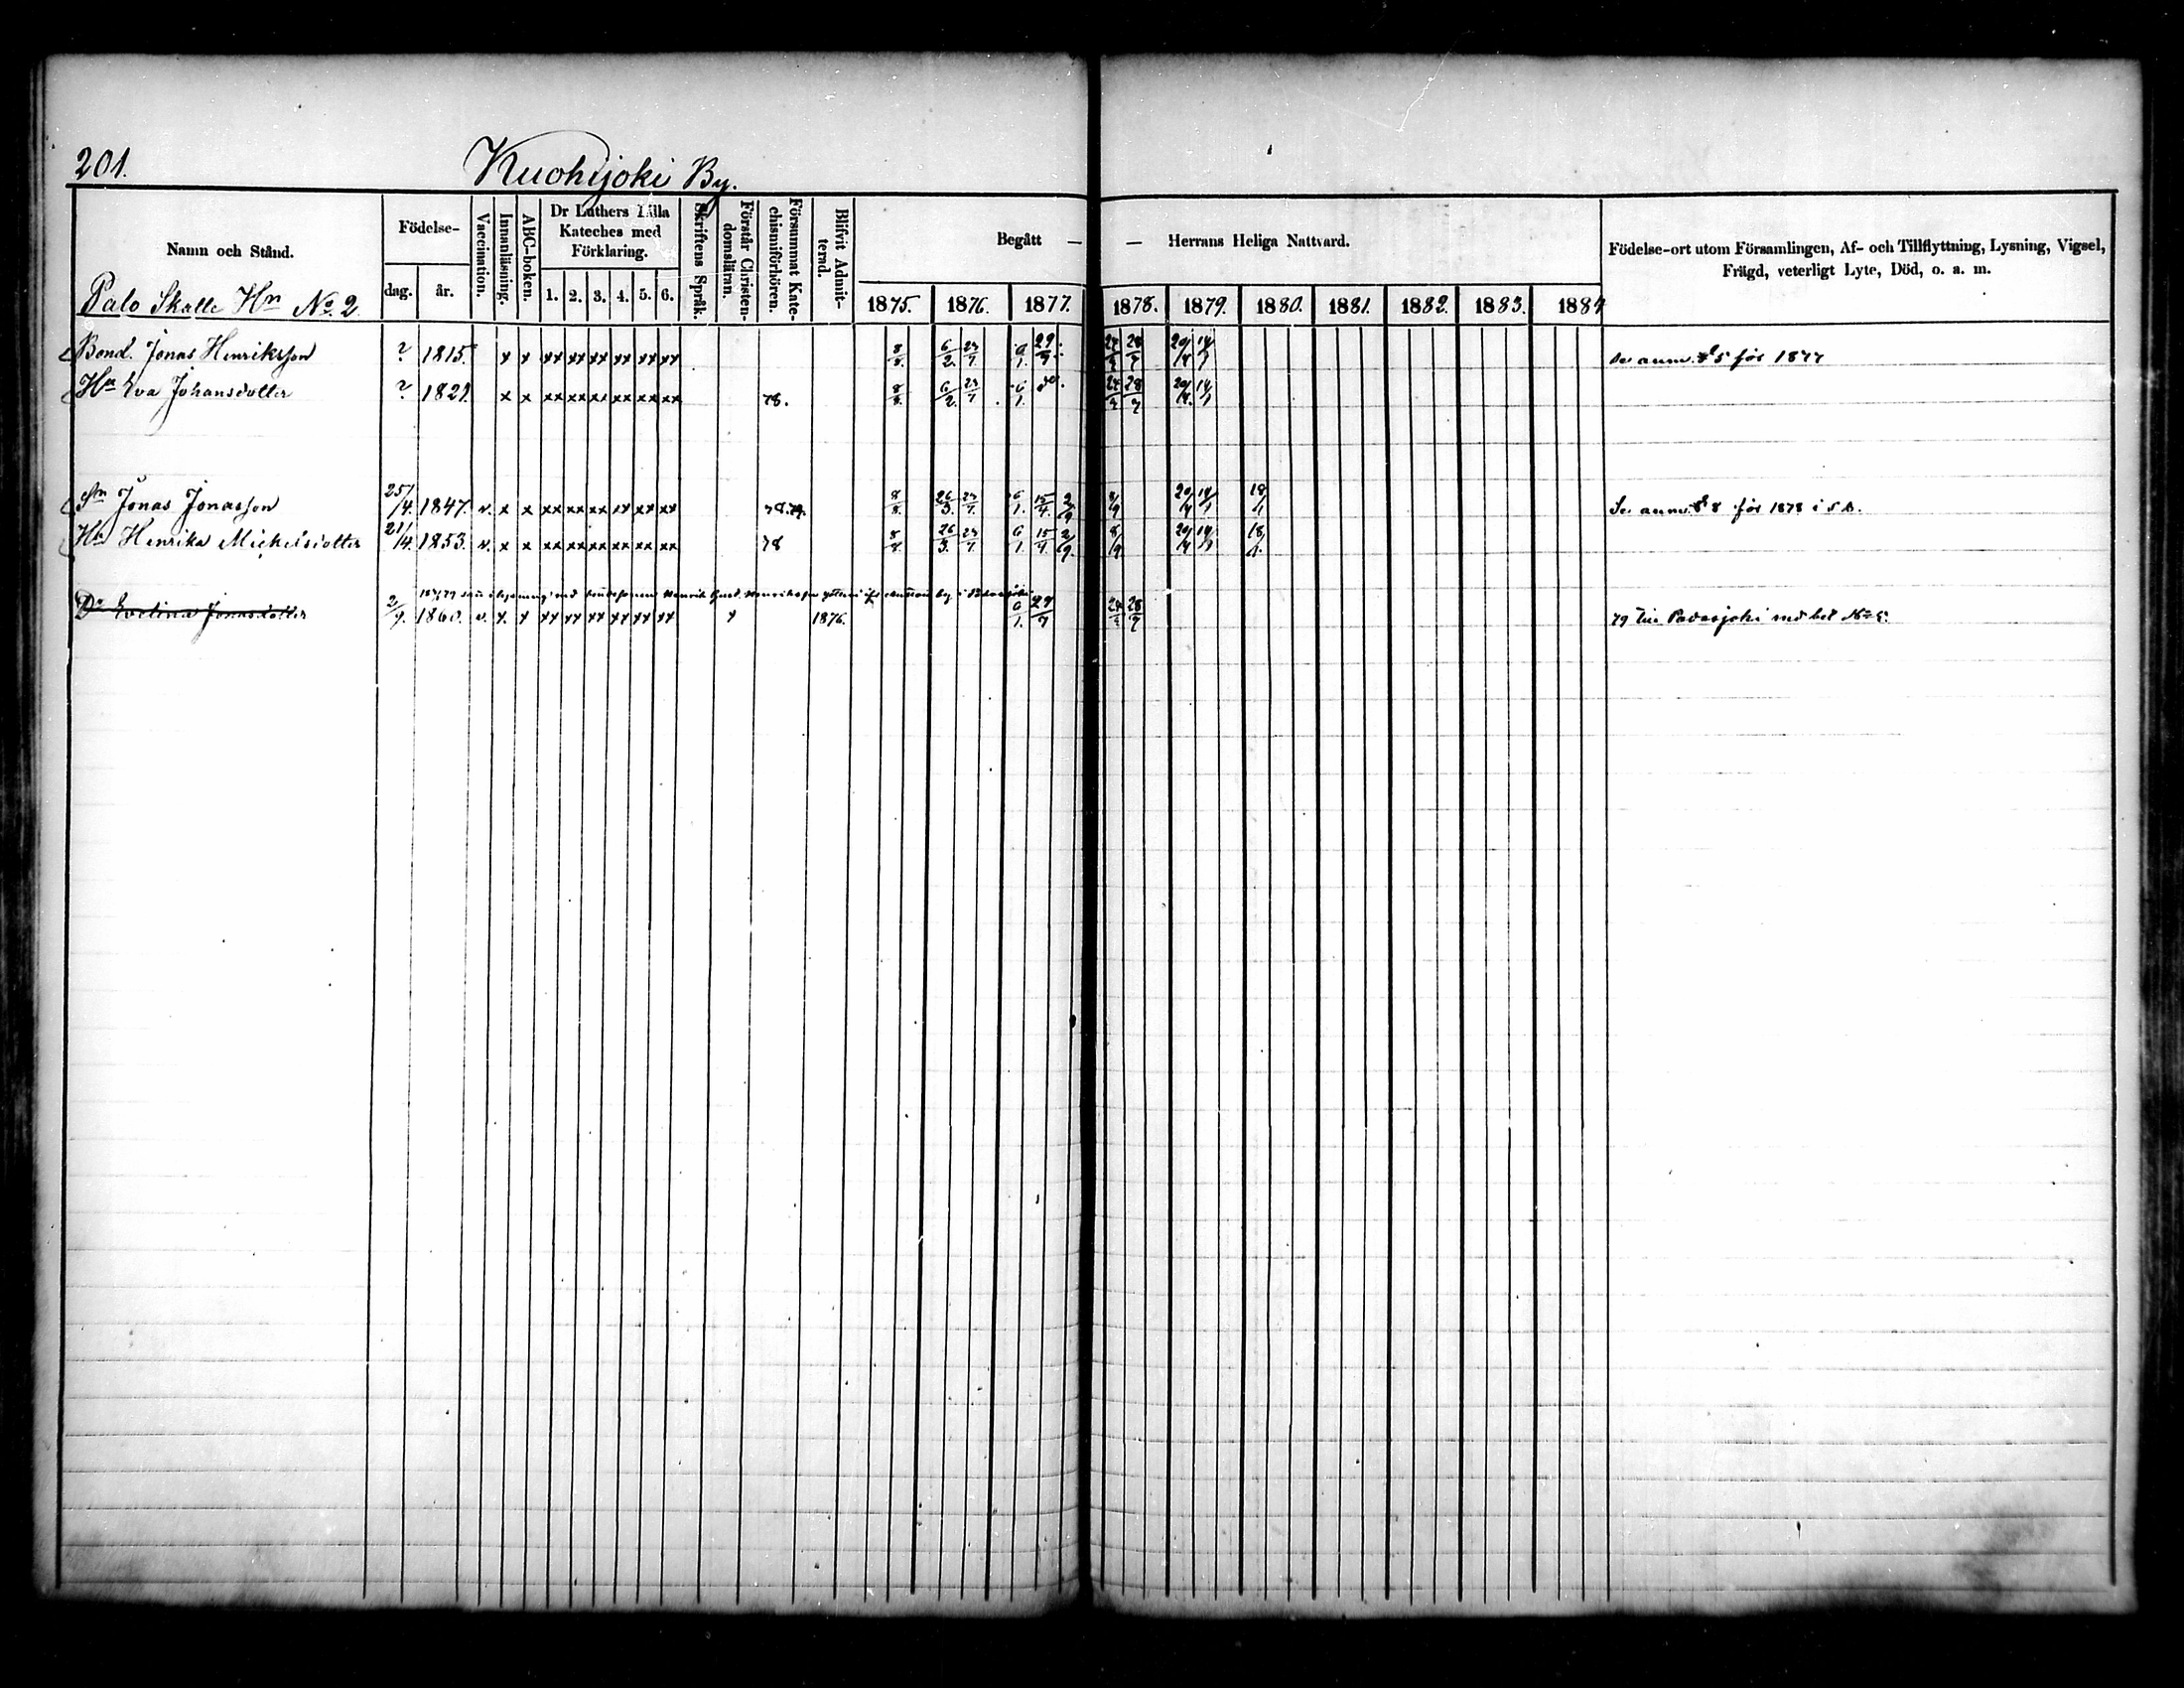 201.
Kuohijoki By.
Namn och Stånd.
Födelse-
dag.
år.
Vaccination.
Innanläsning.
ABC-boken.
Dr Luthers Lilla Kateches med Förklaring.
1. 2. 3. 4. 5. 6.
Skriftens Språk.
Förstår Christendomsläran.
Försummat Katechismiförhören.
Blifvit Admitterad.
Begått — — Herrans Heliga Nattvard.
1875. 1876. 1877. 1878. 1879. 1880. 1881. 1882. 1883. 1884
Födelse-ort utom Församlingen, Af- och Tillflyttning, Lysning, Vigsel,
Frägd, veterligt Lyte, Död, o. a. m.
Palo Skatte Hn No 2.
Bond. Jonas Henriksson ? 1815. x x xx xx xx xx xx xx 8/8. 6/2. 6/1. 29/7. 28/7 Se anm. 5 för 1877
Hu Eva Johansdotter ? 1829. x x xx xx xx xx xx xx 78. 8/8. 6/2. 6/1. do. 28/7
Sn Jonas Jonasson 25/4. 1847. v. x x xx xx xx xx xx xx 8/8. 26/3. 6/1. 15/4. 2/9 8/9 18/1 Se anm. 8 för 1878 i S.B.
Hu Henrika Michelsdotter 21/4. 1853. v. x x xx xx xx xx xx xx 78 8/8. 26/3. 6/1. 15/4. 2/9 8/9 18/1.
Dr Evelina Jonasdotter 2/9. 1860. v. x. x xx xx xx xx xx xx x 1876. 6/1. 29/7 28/7 79 till Padasjoki med bet No 5.